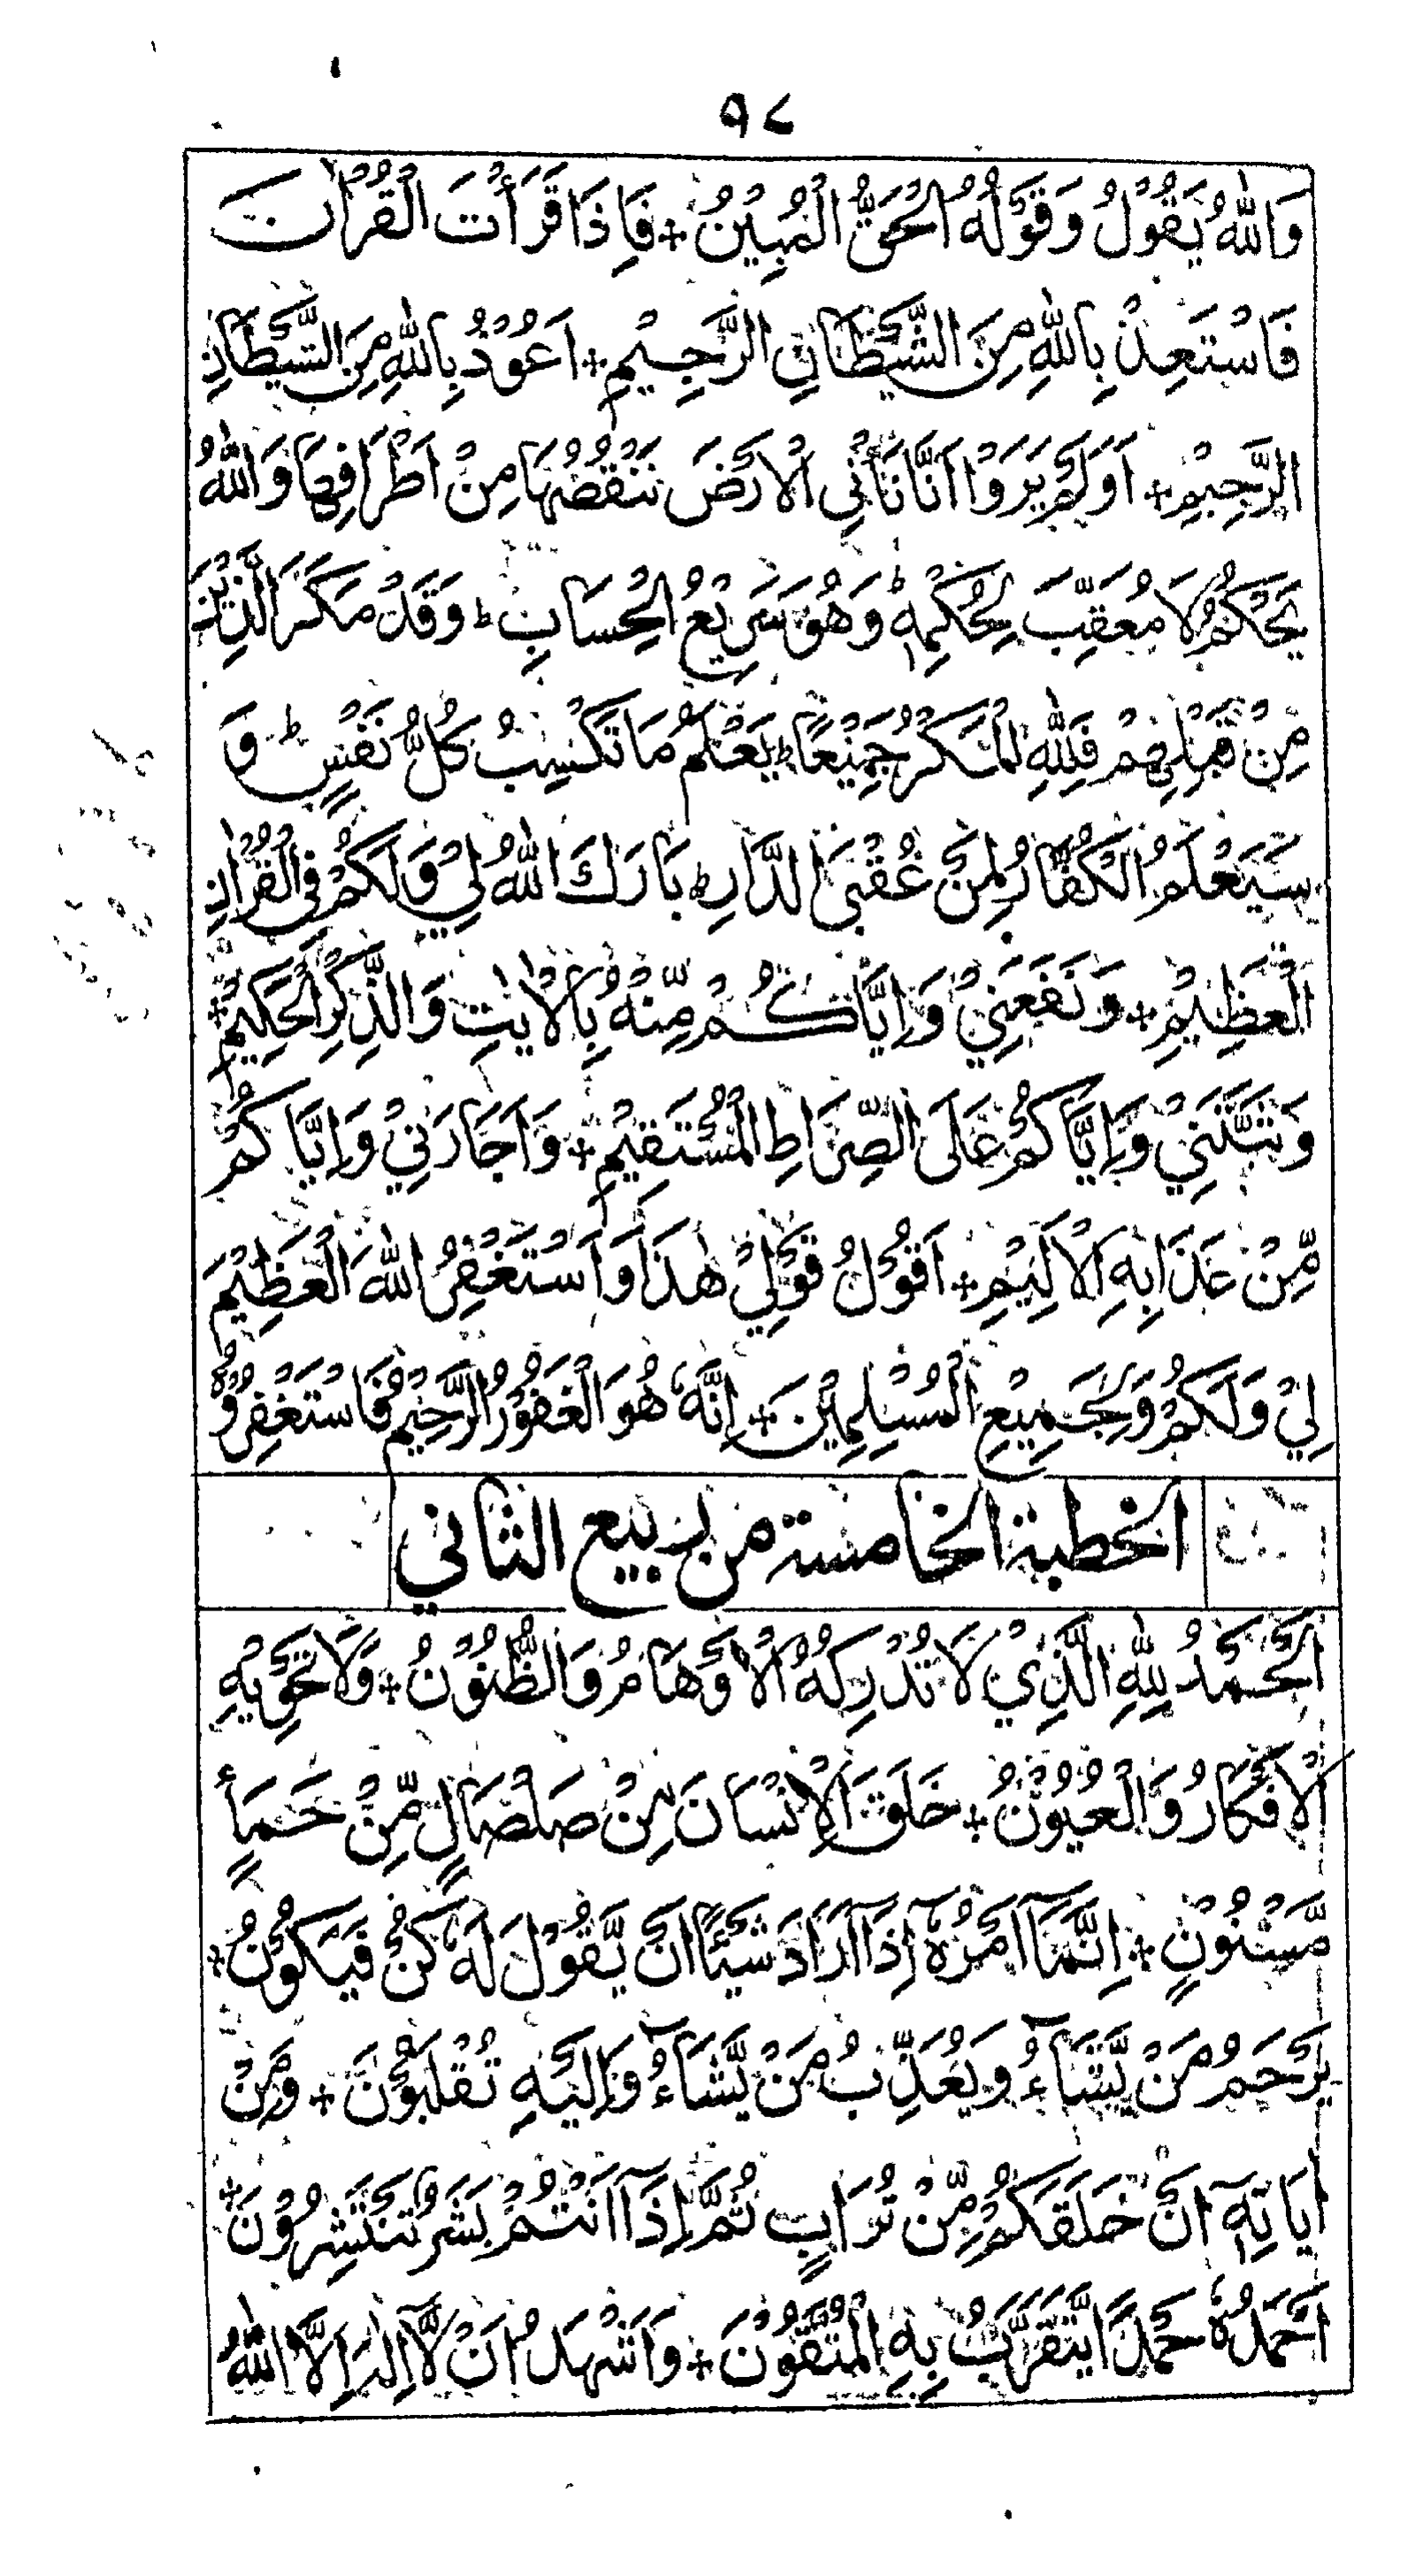 ٩٧
وَاللّٰهُ يَقُوْلُ وَقَوْلُهُ الْحَقُّ الْمُبِيْنُ + فَاِذَا قَرَأْتَ الْقُرْاٰنَ
فَاسْتَعِذْ بِاللّٰهِ مِنَ الشَّيْطَانِ الرَّجِيْمِ + اَعُوْذُ بِاللّٰهِ مِنَ الشَّيْطَانِ
الرَّجِيْمِ + اَوَلَمْ يَرَوْا اَنَّا نَأْتِى الْاَرْضَ نَنْقُصُهَا مِنْ اَطْرَافِهَا وَاللّٰهُ
يَحْكُمُ لَا مُعَقِّبَ لِحُكْمِهٖ ؕ وَهُوَ سَرِيْعُ الْحِسَابِ ؕ وَقَدْ مَكَرَ الَّذِيْنَ
مِنْ قَبْلِهِمْ فَلِلّٰهِ الْمَكْرُ جَمِيْعًا ؕ يَعْلَمُ مَا تَكْسِبُ كُلُّ نَفْسٍ ؕ وَ
سَيَعْلَمُ الْكُفّٰارُ لِمَنْ عُقْبَى الدَّارِ ؕ بَارَكَ اللّٰهُ لِيْ وَلَكُمْ فِى الْقُرْاٰنِ
الْعَظِيْمِ + وَنَفَعَنِيْ وَاِيَّاكُمْ مِّنْهُ بِالْاٰيٰتِ وَالذِّكْرِ الْحَكِيْمِ +
وَثَبَّتَنِيْ وَاِيَّاكُمْ عَلَى الصِّرَاطِ الْمُسْتَقِيْمِ + وَاَجَارَنِيْ وَاِيَّاكُمْ
مِّنْ عَذَابِهِ الْاَلِيْمِ + اَقُوْلُ قَوْلِيْ هٰذَا وَاَسْتَغْفِرُ اللّٰهَ الْعَظِيْمَ
لِيْ وَلَكُمْ وَلِجَمِيْعِ الْمُسْلِمِيْنَ + اِنَّهٗ هُوَ الْغَفُوْرُ الرَّحِيْمُ فَاسْتَغْفِرُوْهُ
الخطبة الخامسة من ربيع الثاني
اَلْحَمْدُ لِلّٰهِ الَّذِيْ لَا تُدْرِكُهُ الْاَوْهَامُ وَالظُّنُوْنُ + وَلَا تَحْوِيْهِ
الْاَفْكَارُ وَالْعُيُوْنُ + خَلَقَ الْاِنْسَانَ مِنْ صَلْصَالٍ مِّنْ حَمَأٍ
مَّسْنُوْنٍ + اِنَّمَآ اَمْرُهٗٓ اِذَآ اَرَادَ شَيْئًا اَنْ يَّقُوْلَ لَهٗ كُنْ فَيَكُوْنُ +
يَرْحَمُ مَنْ يَّشَآءُ وَيُعَذِّبُ مَنْ يَّشَآءُ وَاِلَيْهِ تُقْلَبُوْنَ + وَمِنْ
اٰيَاتِهٖٓ اَنْ خَلَقَكُمْ مِّنْ تُرَابٍ ثُمَّ اِذَآ اَنْتُمْ بَشَرٌ تَنْتَشِرُوْنَ +
اَحْمَدُهٗ حَمْدًا يَّتَقَرَّبُ بِهِ الْمُتَّقُوْنَ + وَاَشْهَدُ اَنْ لَّآ اِلٰهَ اِلَّا اللّٰهُ